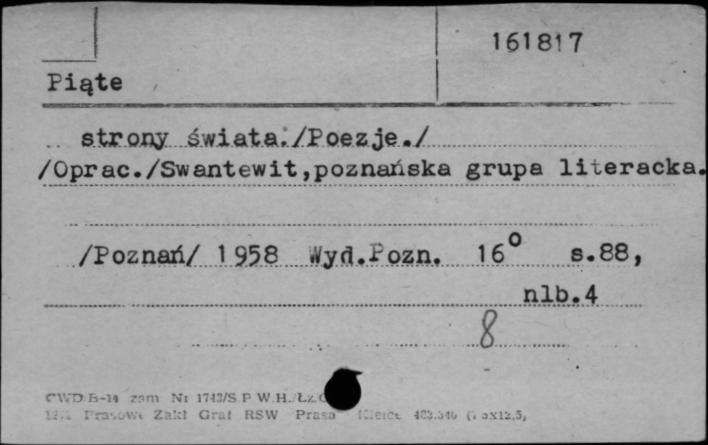 161817
Piąte
strony świata./Poezje./
/Oprac./Swantewit,poznańska grupa literacka.
/Poznań/ 1958 Wyd.Pozn. 16° s.88,
nlb.4
8
CWD B-14 zam Nr 1743/S P W.H. Łz.
Prasowe Zakł Graf RSW Prasa Kielce